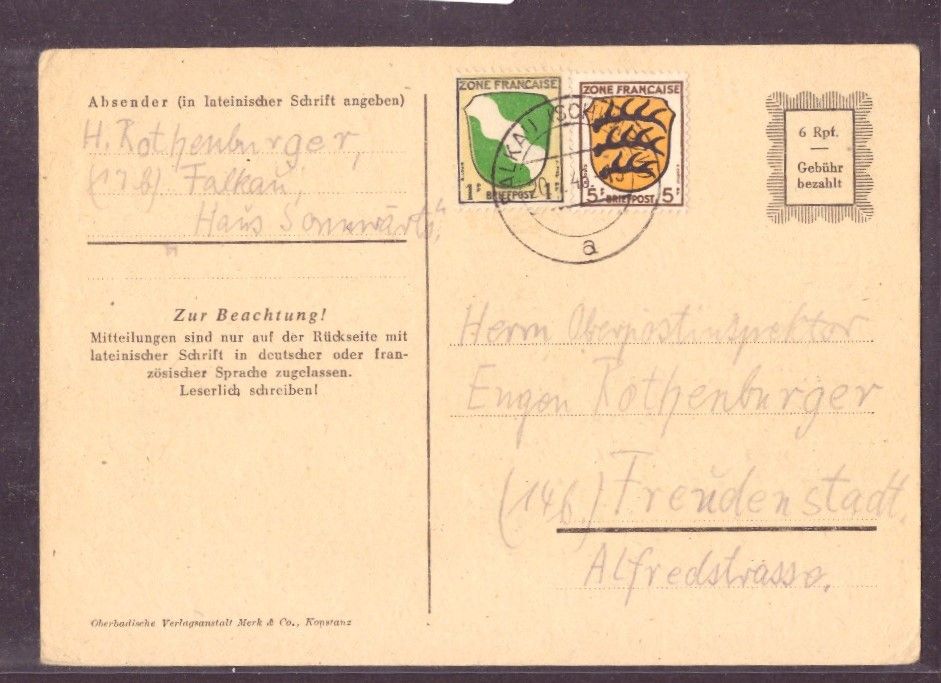 Absender (in lateinischer Schrift angeben)
H. Rothenburger,
(17b) Falkau,
"Haus Sonnwärts"
Zur Beachtung!
Mitteilungen sind nur auf der Rückseite mit
lateinischer Schrift in deutscher oder fran-
zösischer Sprache zugelassen.
Leserlich schreiben!
Oberbadische Verlagsanstalt Merk & Co., Konstanz
ZONE FRANCAISE
1F BRIEFPOST 1F
ZONE FRANCAISE
5F BRIEFPOST 5F
a
6 Rpf.
—
Gebühr
bezahlt
Herrn Oberpostinspektor
Eugen Rothenburger
(14b) Freudenstadt.
Alfredstrasse.